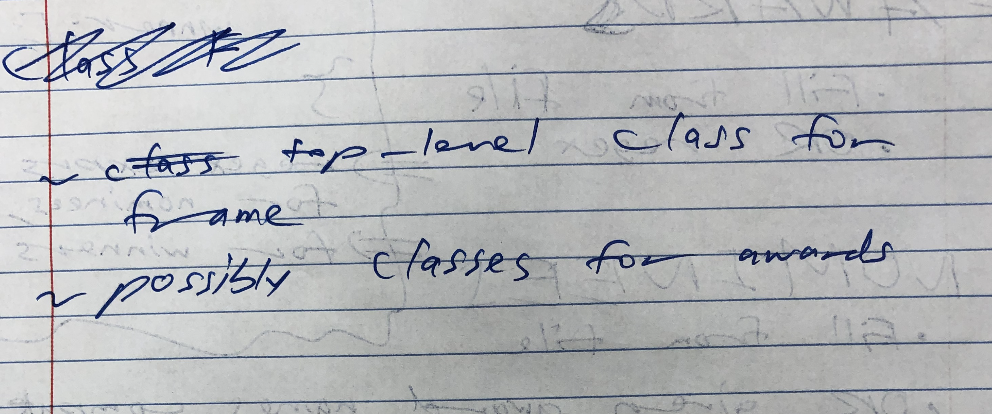 ~ class top-level class for
frame
~ possibly classes for awards